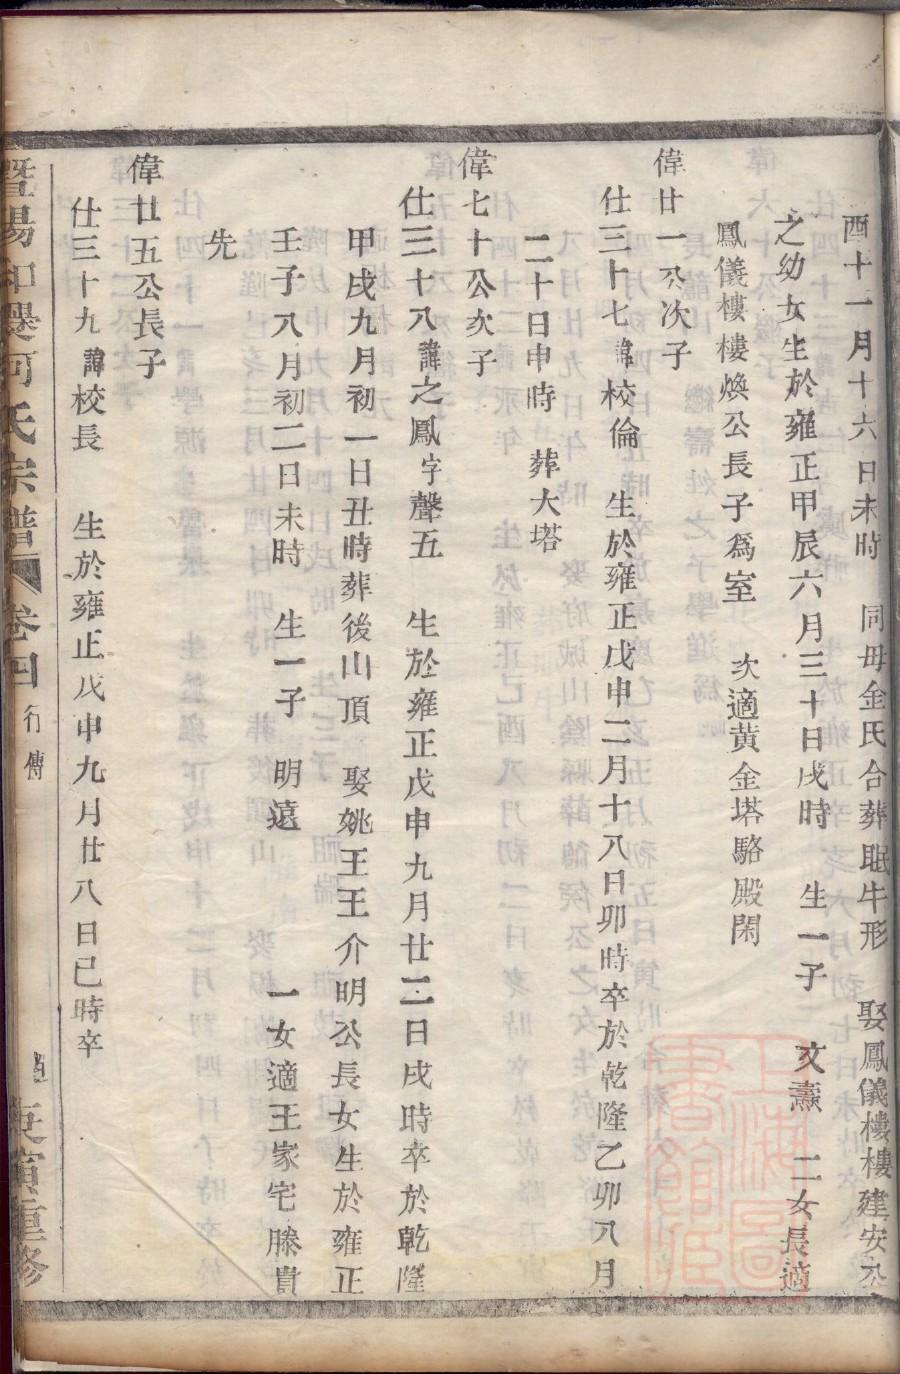 酉十一月十六日未時 同母金氏合葬眠牛形 娶鳳儀樓樓建安公
之幼女生於雍正甲辰六月三十日戌時 生一子 文燾 二女長適
鳳儀樓樓煥公長子爲室 次適黄金塔駱殿閑
偉廿一公次子
仕三十七諱校倫 生於雍正戊申二月十八日卯時卒於乾隆乙卯八月
二十日申時 葬大塔
偉七十公次子
仕三十八諱之鳳字聲五 生於雍正戊申九月廿二日戌時卒於乾隆
甲戌九月初一日丑時葬後山頂 娶姚王王介明公長女生於雍正
壬子八月初二日未時 生一子 明遠 一女適王家宅滕貴
先
偉廿五公長子
仕三十九諱校長 生於雍正戊申九月廿八日巳時卒
暨陽 河氏宗譜 卷四 行傳 重修
上海圖書館藏